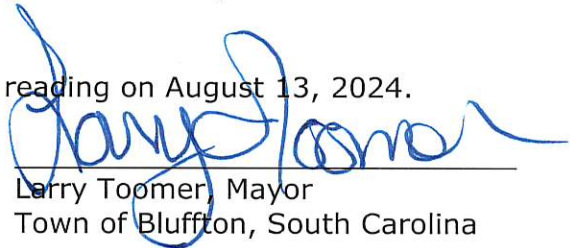 reading on August 13, 2024.
Larry Toomer
Larry Toomer, Mayor
Town of Bluffton, South Carolina